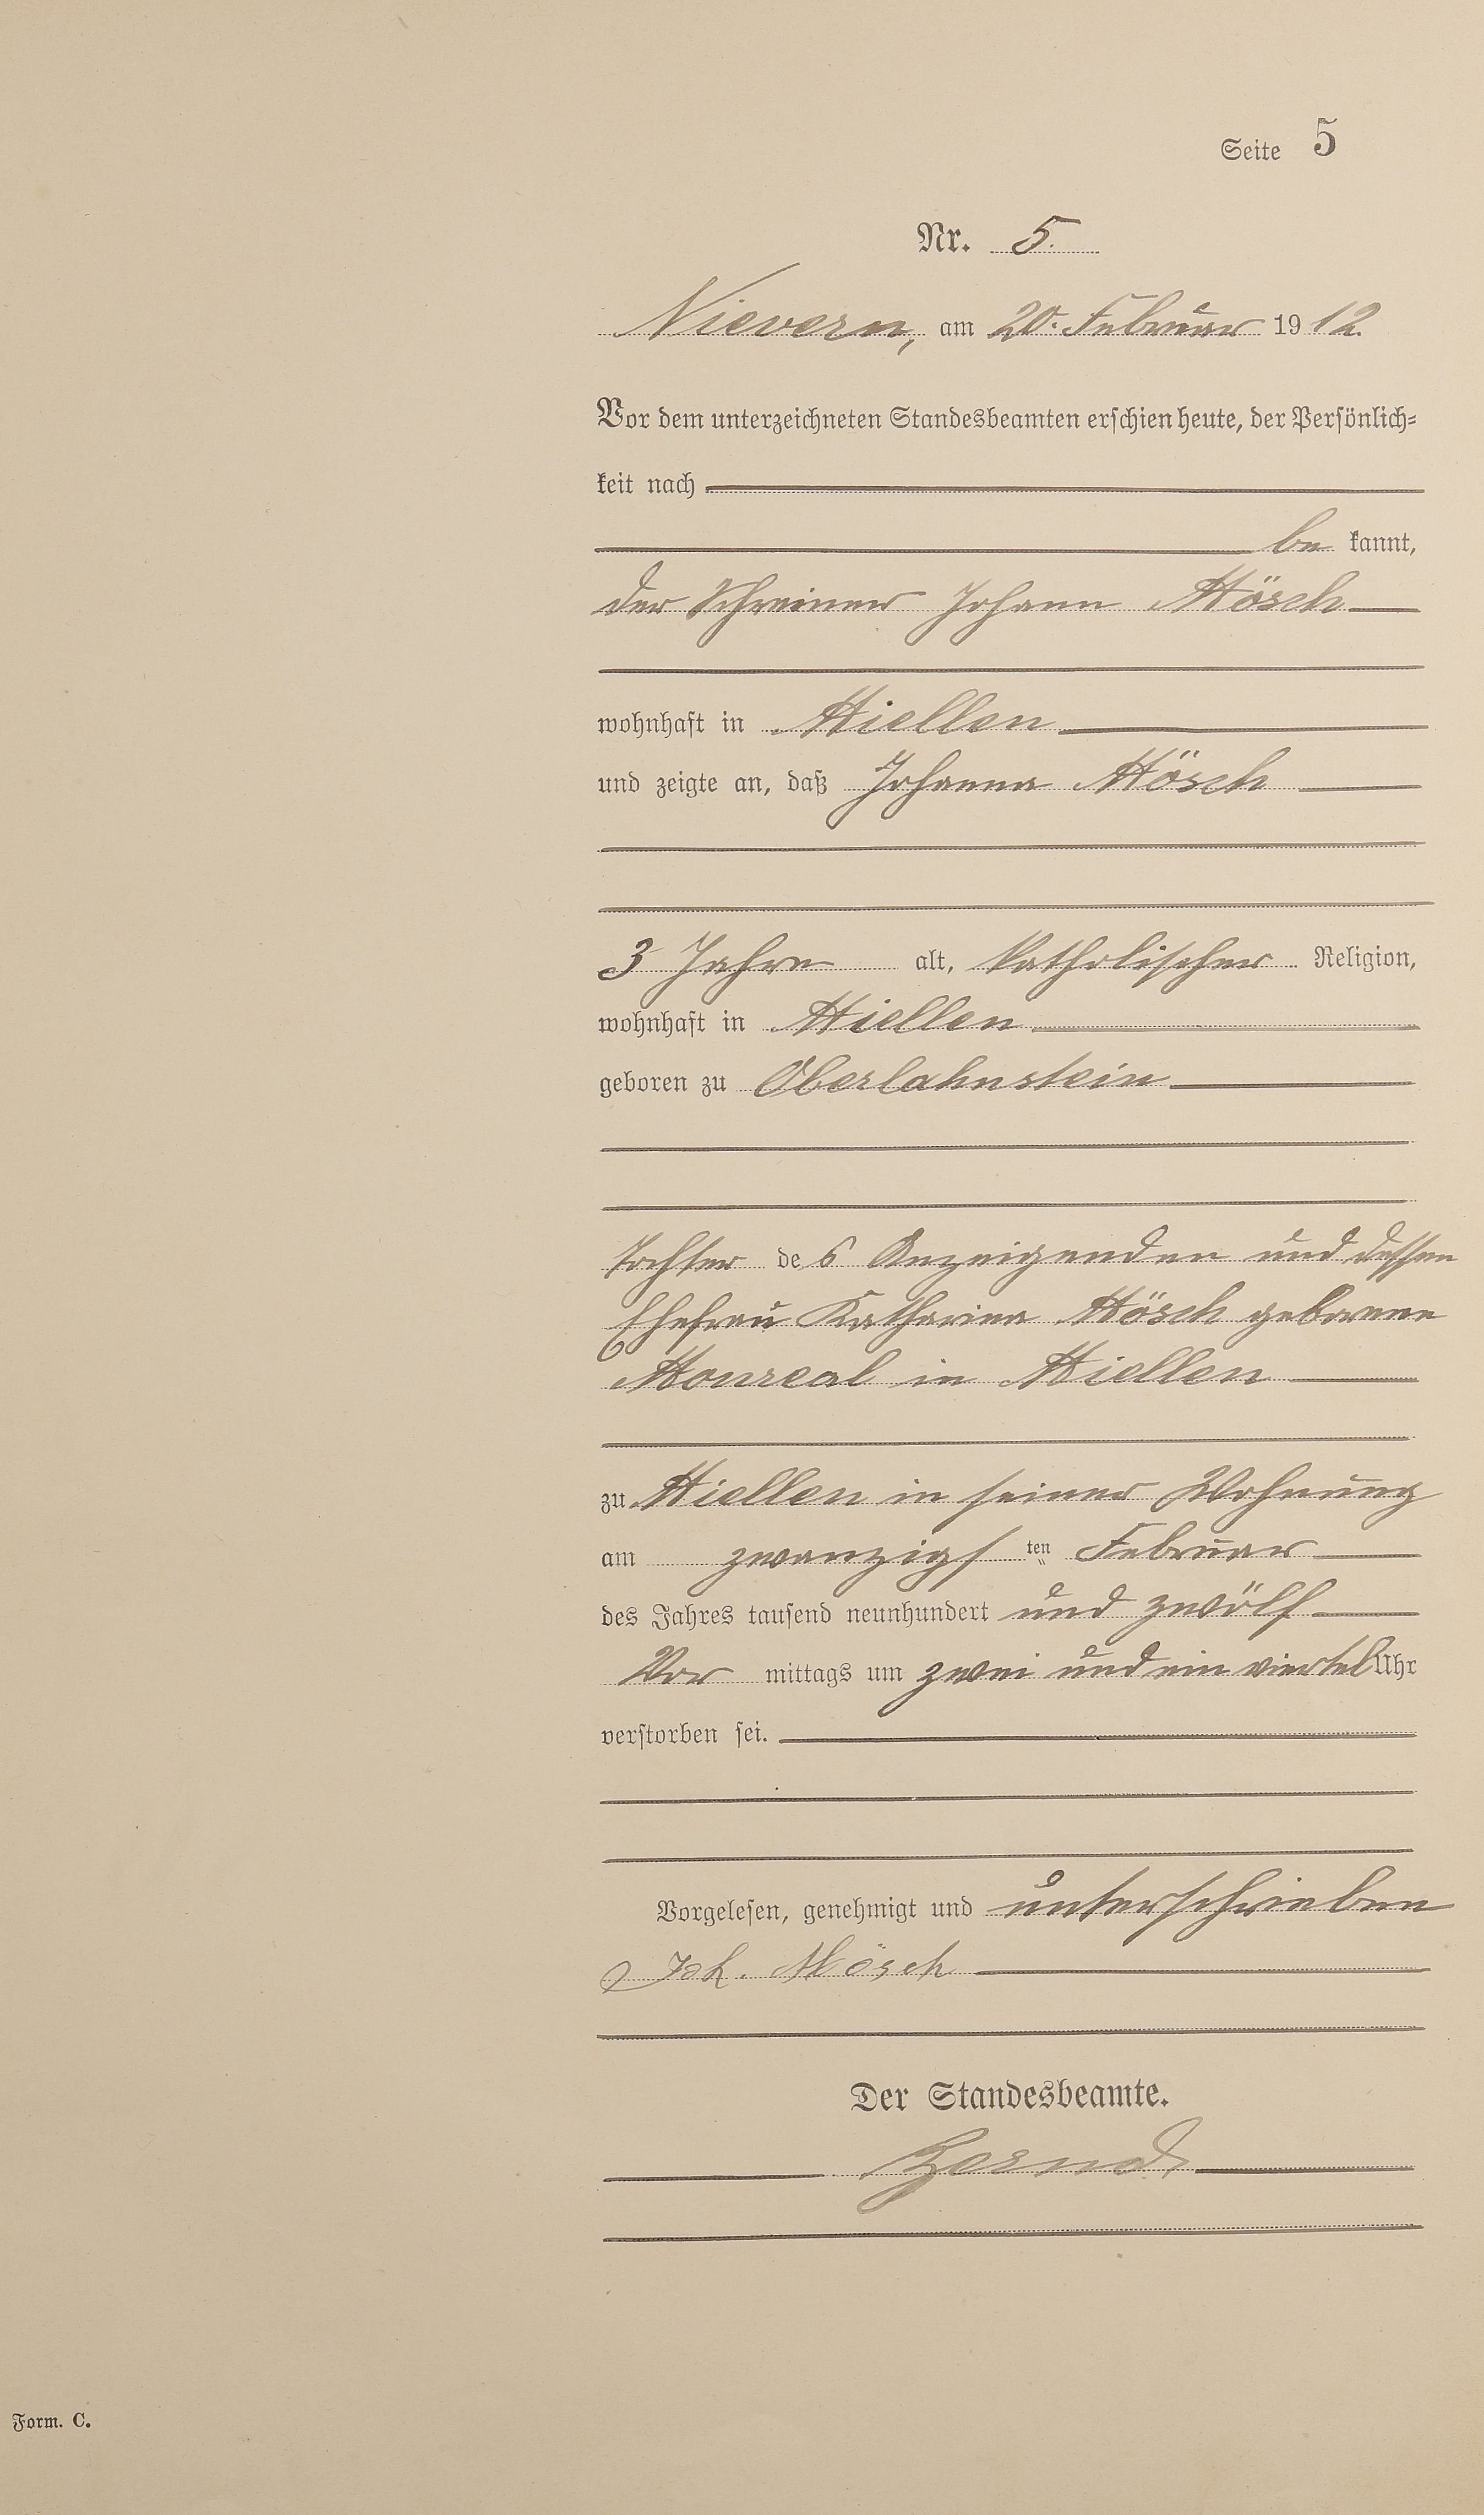 Seite 5
Nr. 5.
Nievern, am 20. Februar 1912.
Vor dem unterzeichneten Standesbeamten erschien heute, der Persönlich-
keit nach
be kannt,
der Schreiner Johann Mösch
wohnhaft in Miellen
und zeigte an, daß Johanna Mösch
3 Jahre alt, katholischer Religion,
wohnhaft in Miellen
geboren zu Oberlahnstein
Tochter des Anzeigenden und dessen
Ehefrau Katharina Mösch geborene
Monreal in Miellen
zu Miellen in seiner Wohnung
am zwanzigsten Februar
des Jahres tausend neunhundert und zwölf
Vor mittags um zwei und ein viertel Uhr
verstorben sei.
Vorgelesen, genehmigt und unterschrieben
Joh. Mösch
Der Standesbeamte.
Form. C.